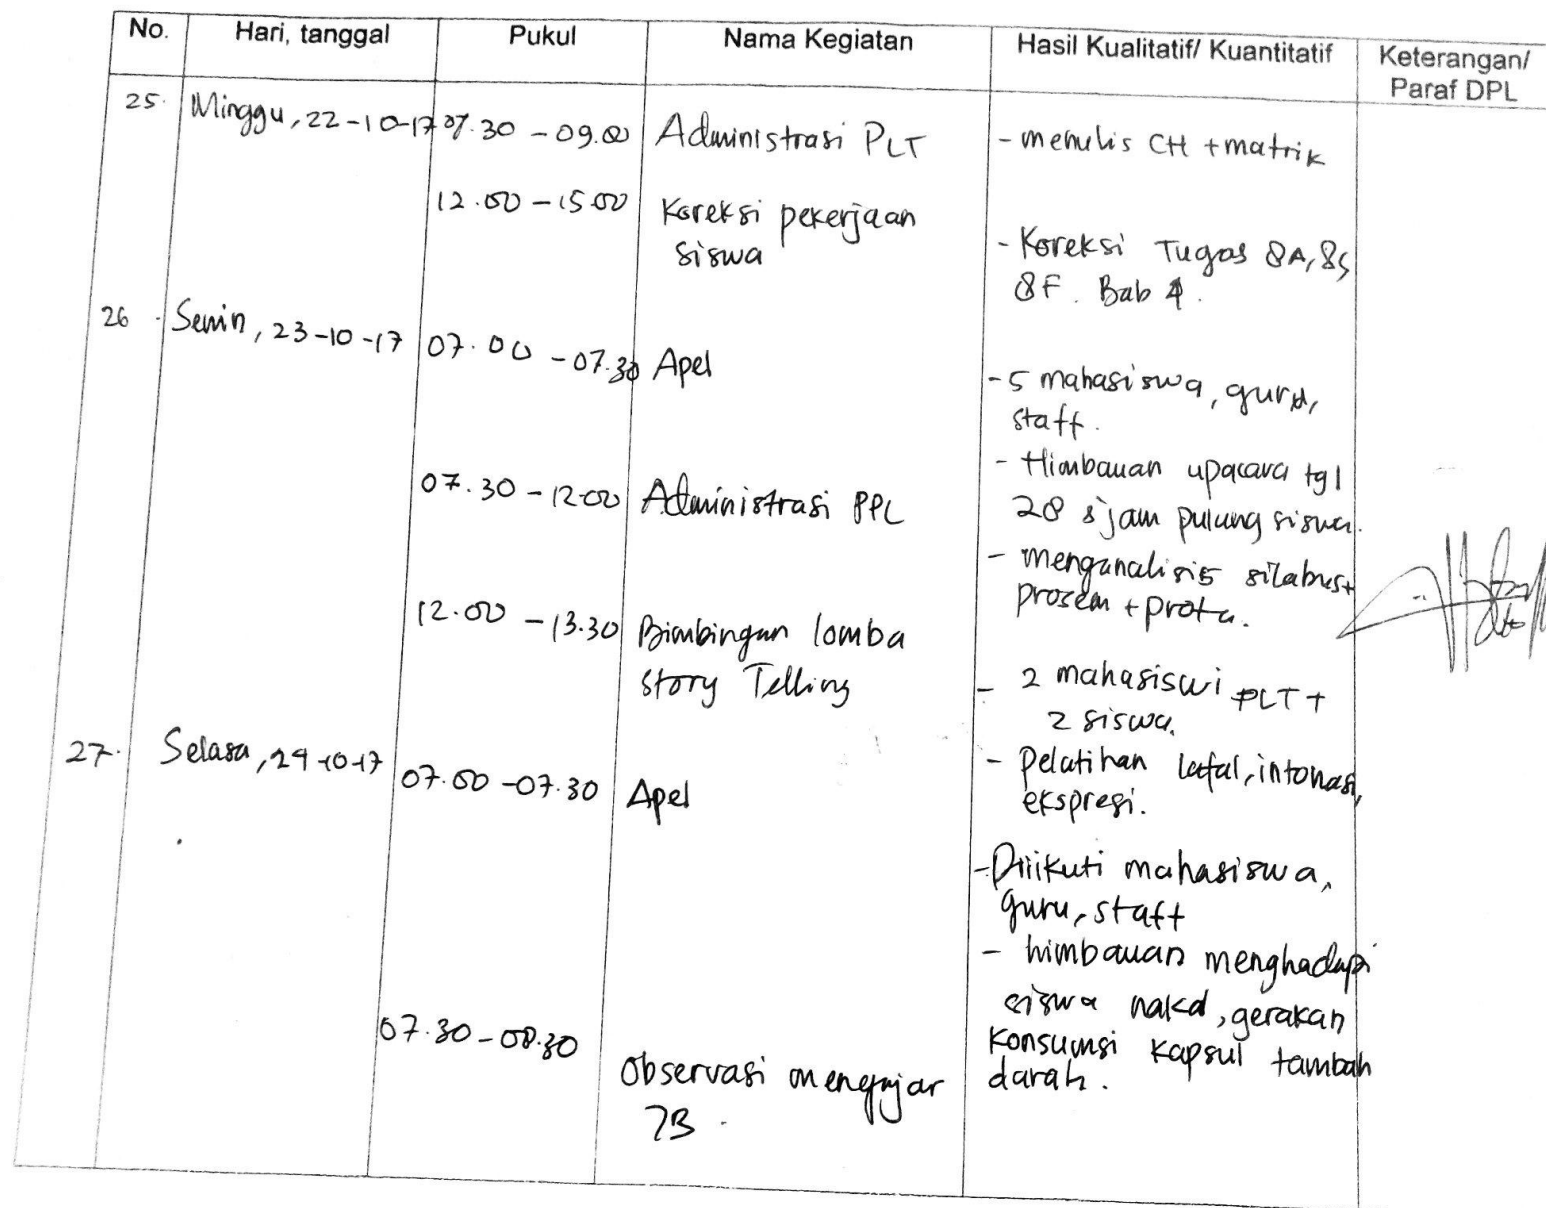 No. Hari, tanggal Pukul Nama Kegiatan Hasil Kualitatif/ Kuantitatif Keterangan/
Paraf DPL
25. Minggu, 22-10-17 07.30 - 09.00 Administrasi PLT - menulis CH + matrik
12.00 - 15.00 Koreksi pekerjaan
siswa
- Koreksi Tugas 8A, 8
8F. Bab 4.
26. Senin, 23-10-17 07.00 - 07.30 Apel
- 5 mahasiswa, guru,
staff.
- Himbauan upacara tgl
28 & jam pulang siswa.
07.30 - 12.00 Administrasi PPL
- menganalisis silabus+
prosem + prota.
12.00 - 13.30 Bimbingan lomba
story Telling
- 2 mahasiswi PLT +
2 siswa.
- Pelatihan lafal, intonasi,
ekspresi.
27. Selasa, 24-10-17 07.00 - 07.30 Apel
- Diikuti mahasiswa,
guru, staff
- himbauan menghadapi
siswa nakal, gerakan
konsumsi kapsul tambah
darah.
07.30 - 08.30 Observasi mengajar
7B.